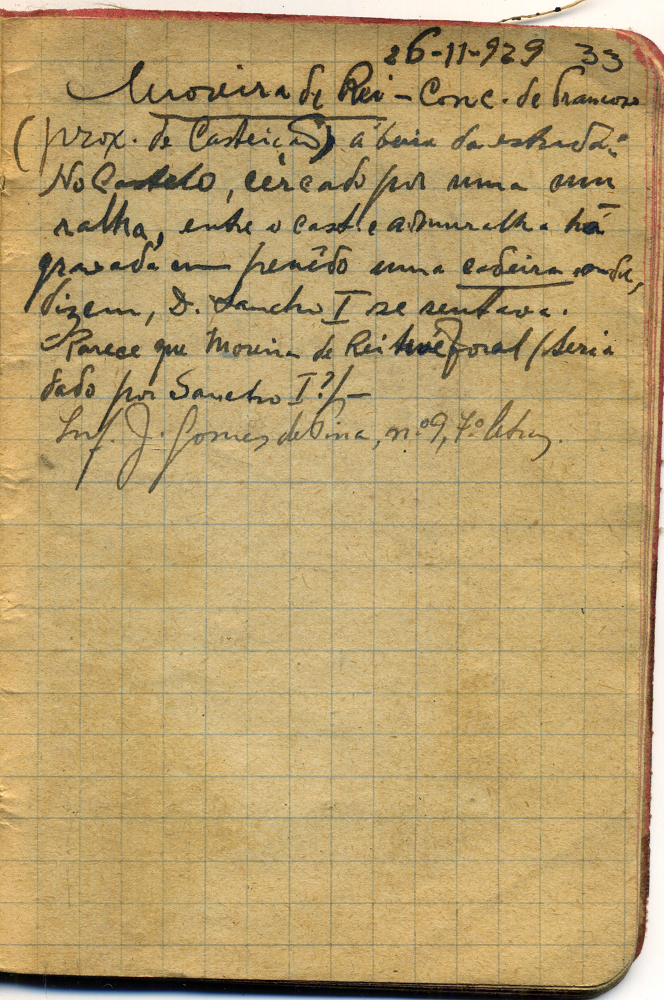 26-11-929 33
Moreira de Rei - Conc. de Trancoso
(prox. de Casteição) á beira da estrada.
No Castelo, cêrcado por uma mu
ralha, entre o cast. e a muralha há
gravada em penêdo uma cadeira onde,
dizem, D. Sancho I se sentava.
Parece que Moreira de Rei teve foral (seria
dado por Sancho I?)-
Inf. J. Gomes de Pina, nº 9, 7º